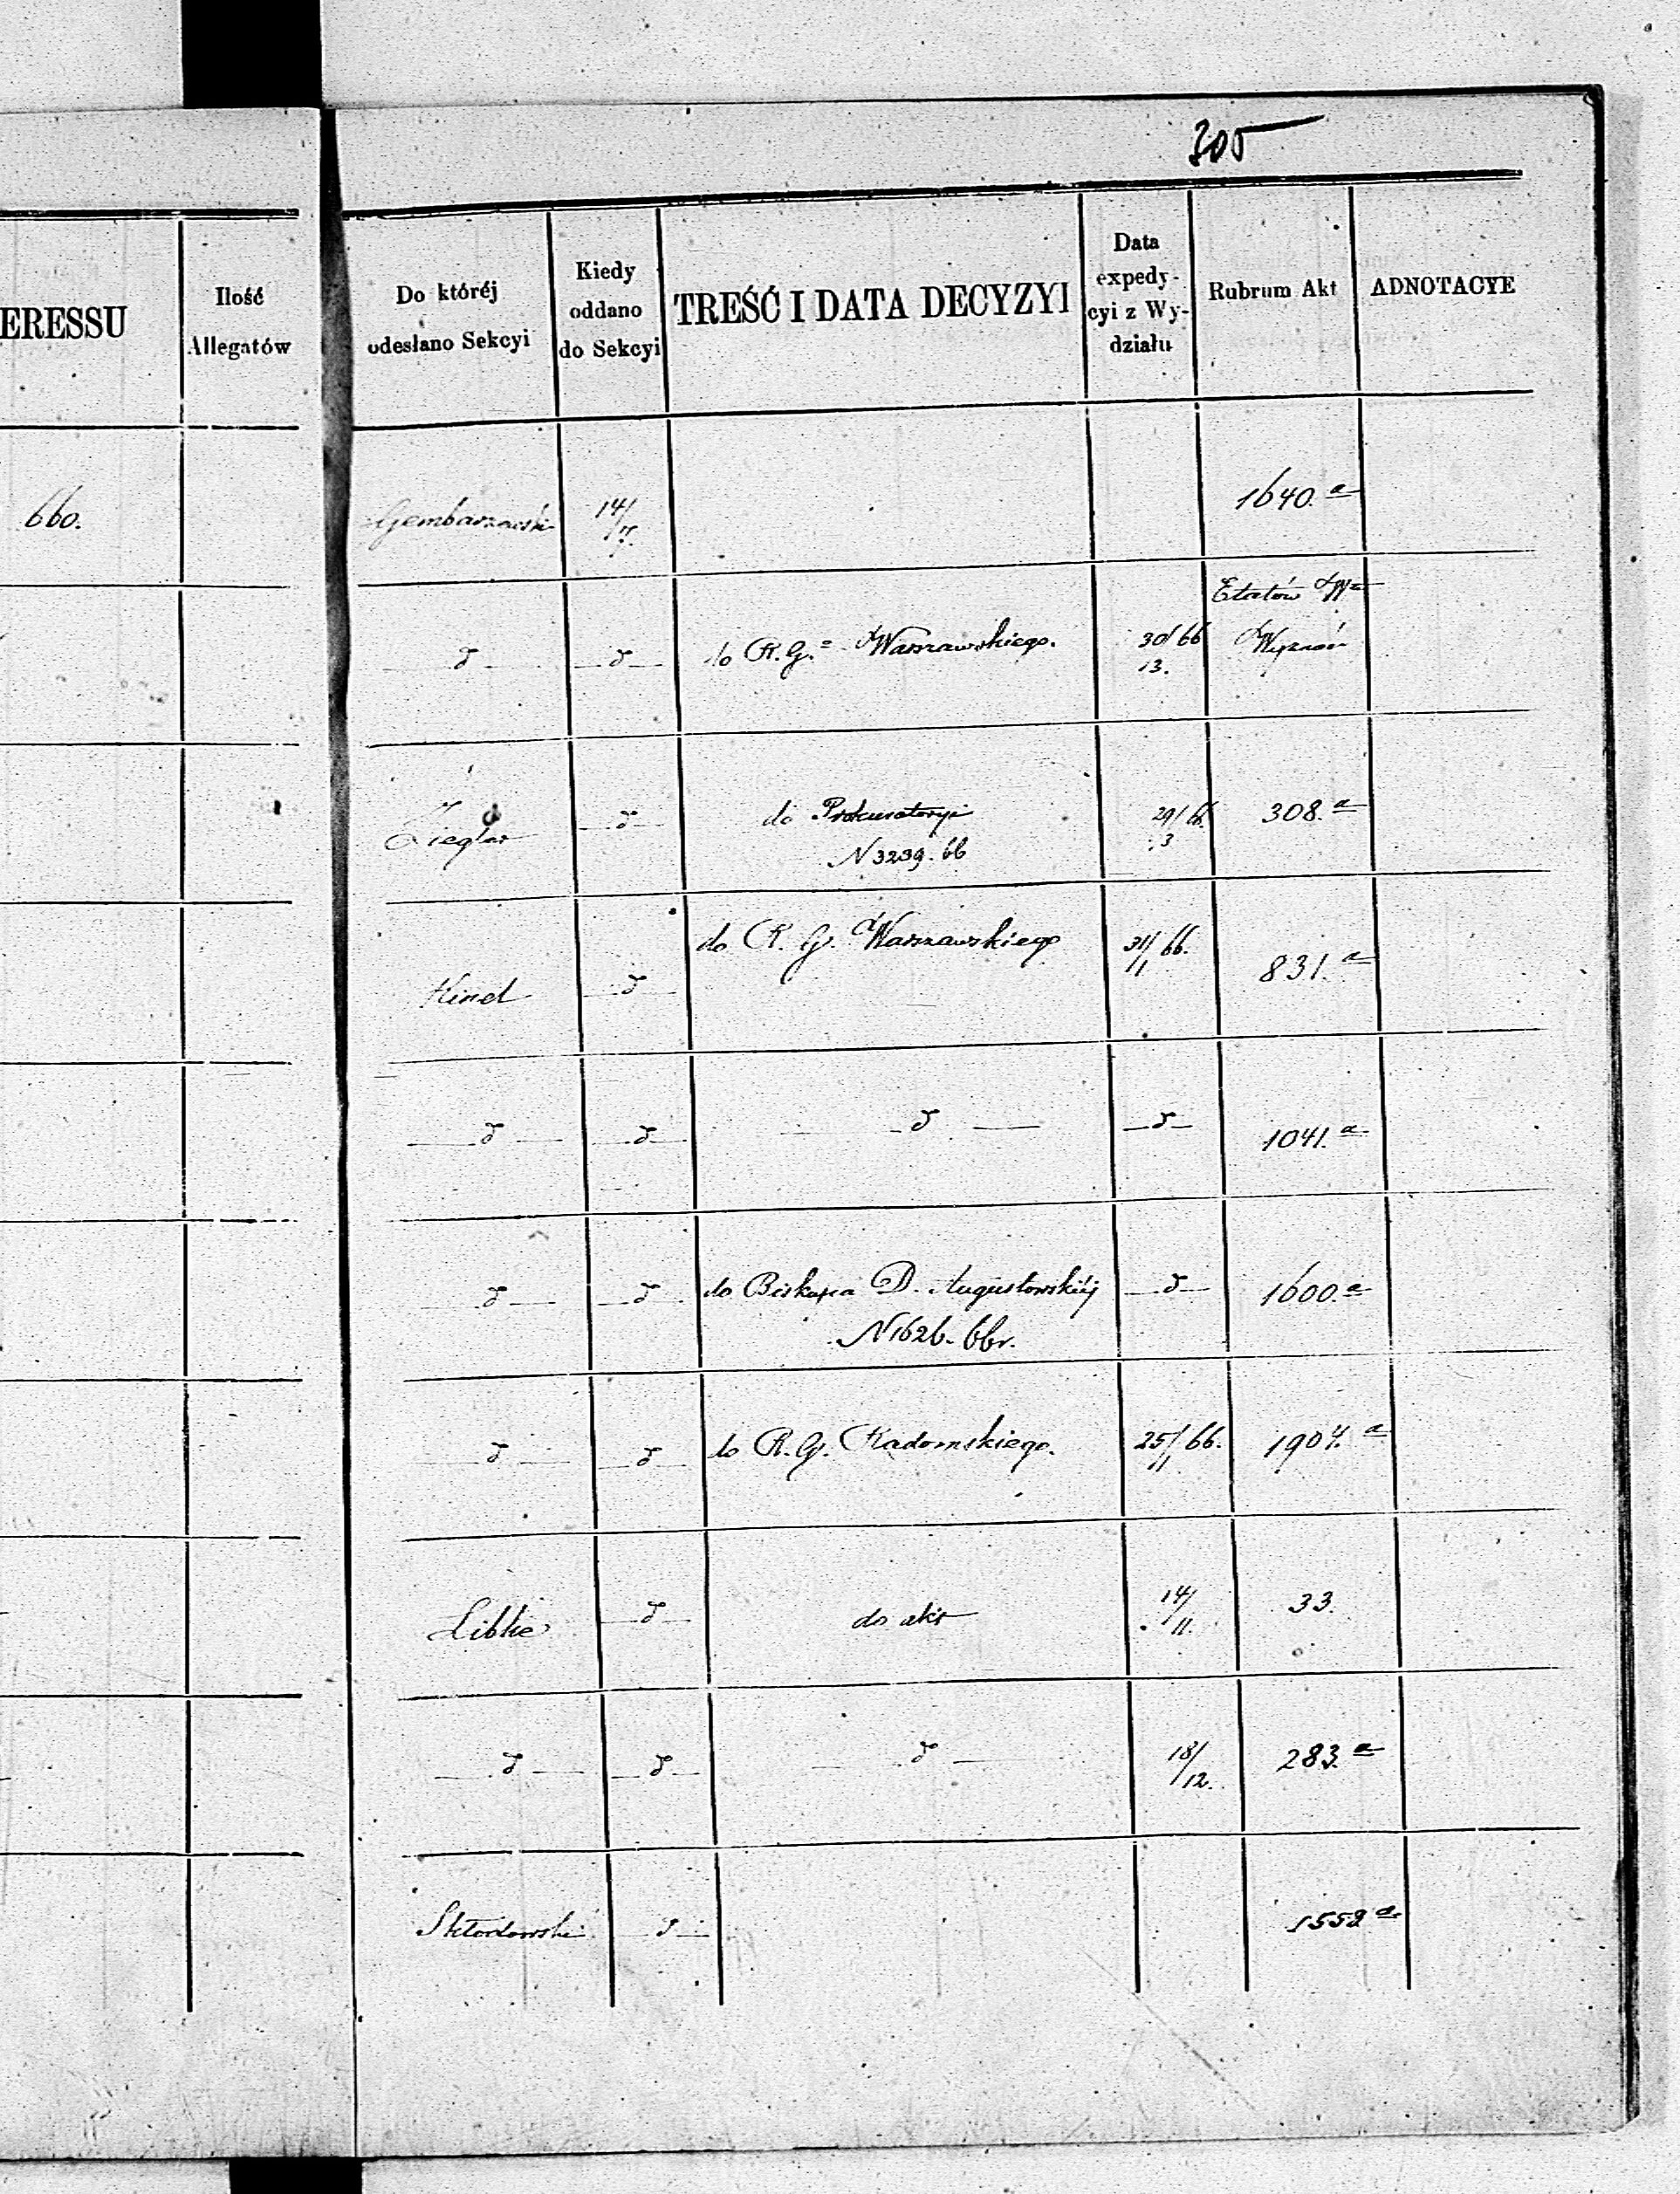 305
ERESSU
Ilość
Allegatów
Do któréj
odesłano Sekcyi
Kiedy
oddano
do Sekcyi
TREŚĆ I DATA DECYZYI
Data
expedy-
cyi z Wy-
działu
Rubrum Akt
ADNOTACYE
660.
Gembarzewski
14/
1640.a
Etatów
d
d
do R. G. Warszawskiego.
30/66
13.
Ziegler
d
do Prokuratoryi
N 3239. 66
29/66.
3
308.a
Kinel
d
do R. G. Warszawskiego
31/66.
831.a
d
d
d
d
1041.a
d
d
do Biskupa D. Augustowskiéj
N 1626. 66r.
d
1600.a
d
d
do R. G. Radomskiego.
25/66.
11
1907.a
Libke
d
do akt
14/
11.
33.
d
d
d
18/
12.
283.a
Skłodowski
d
1552a